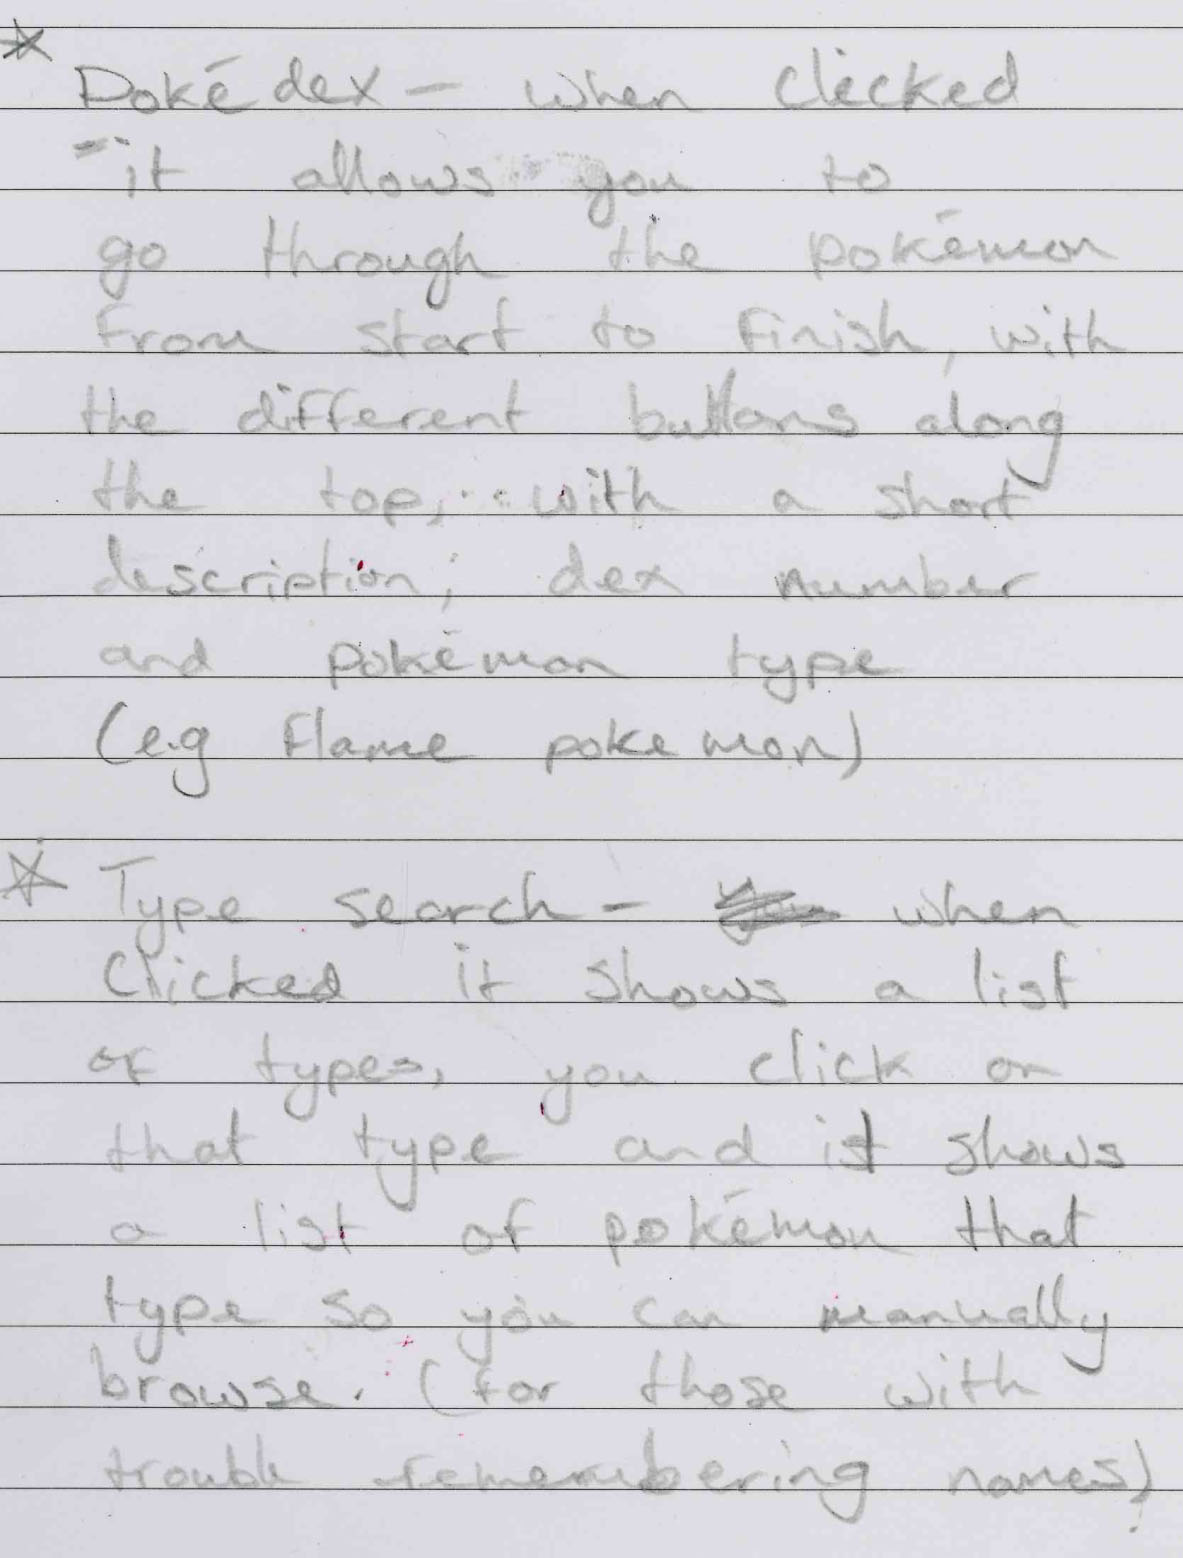 * Pokédex - when clicked
it allows you to
go through the pokémon
from start to finish, with
the different buttons along
the top, with a short
description, dex number
and pokémon type
(e.g flame pokemon)
* Type search - when
clicked it shows a list
of types, you click on
that type and it shows
a list of pokémon that
type so you can manually
browse. (for those with
trouble remembering names)